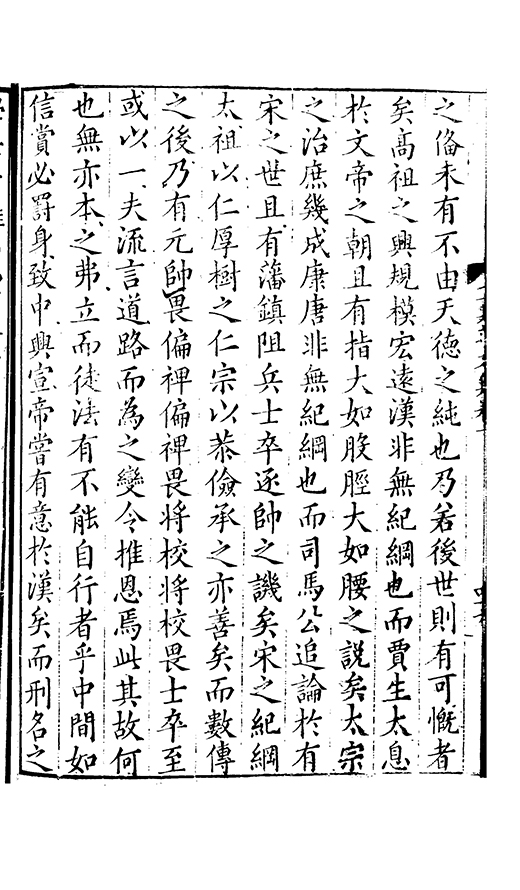 之俻未有不由天德之純也乃若後世則有可慨者
矣髙祖之興規模宏遠漢非無紀綱也而賈生太息
於文帝之朝且有指大如股脛大如腰之說矣太宗
之治庶幾成康唐非無紀綱也而司馬公追論於有
宋之世且有藩鎮阻兵士卒逐帥之譏矣宋之紀綱
太祖以仁厚樹之仁宗以恭儉承之亦善矣而數傳
之後乃有元帥畏偏裨偏裨畏將校將校畏士卒至
或以一夫流言道路而為之變令推恩焉此其故何
也無亦本之弗立而徒法有不能自行者乎中間如
信賞必罰身致中興宣帝嘗有意於漢矣而刑名之